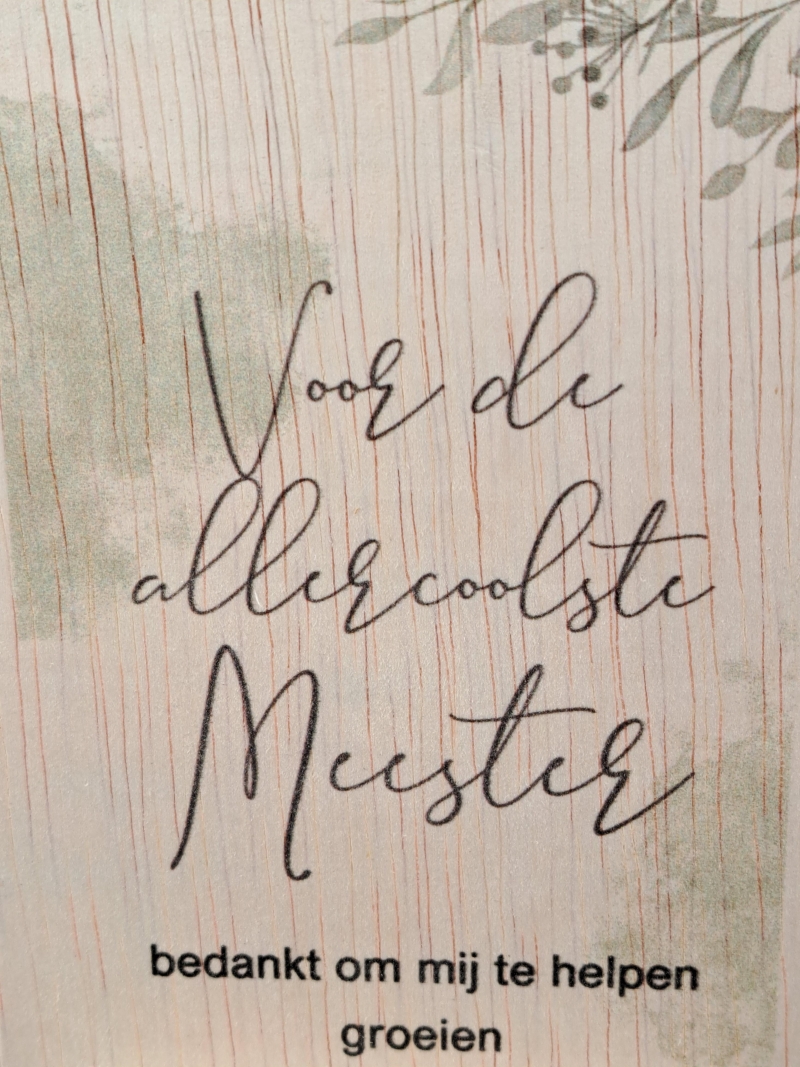 Voor de
allercoolste
Meester
bedankt om mij te helpen
groeien